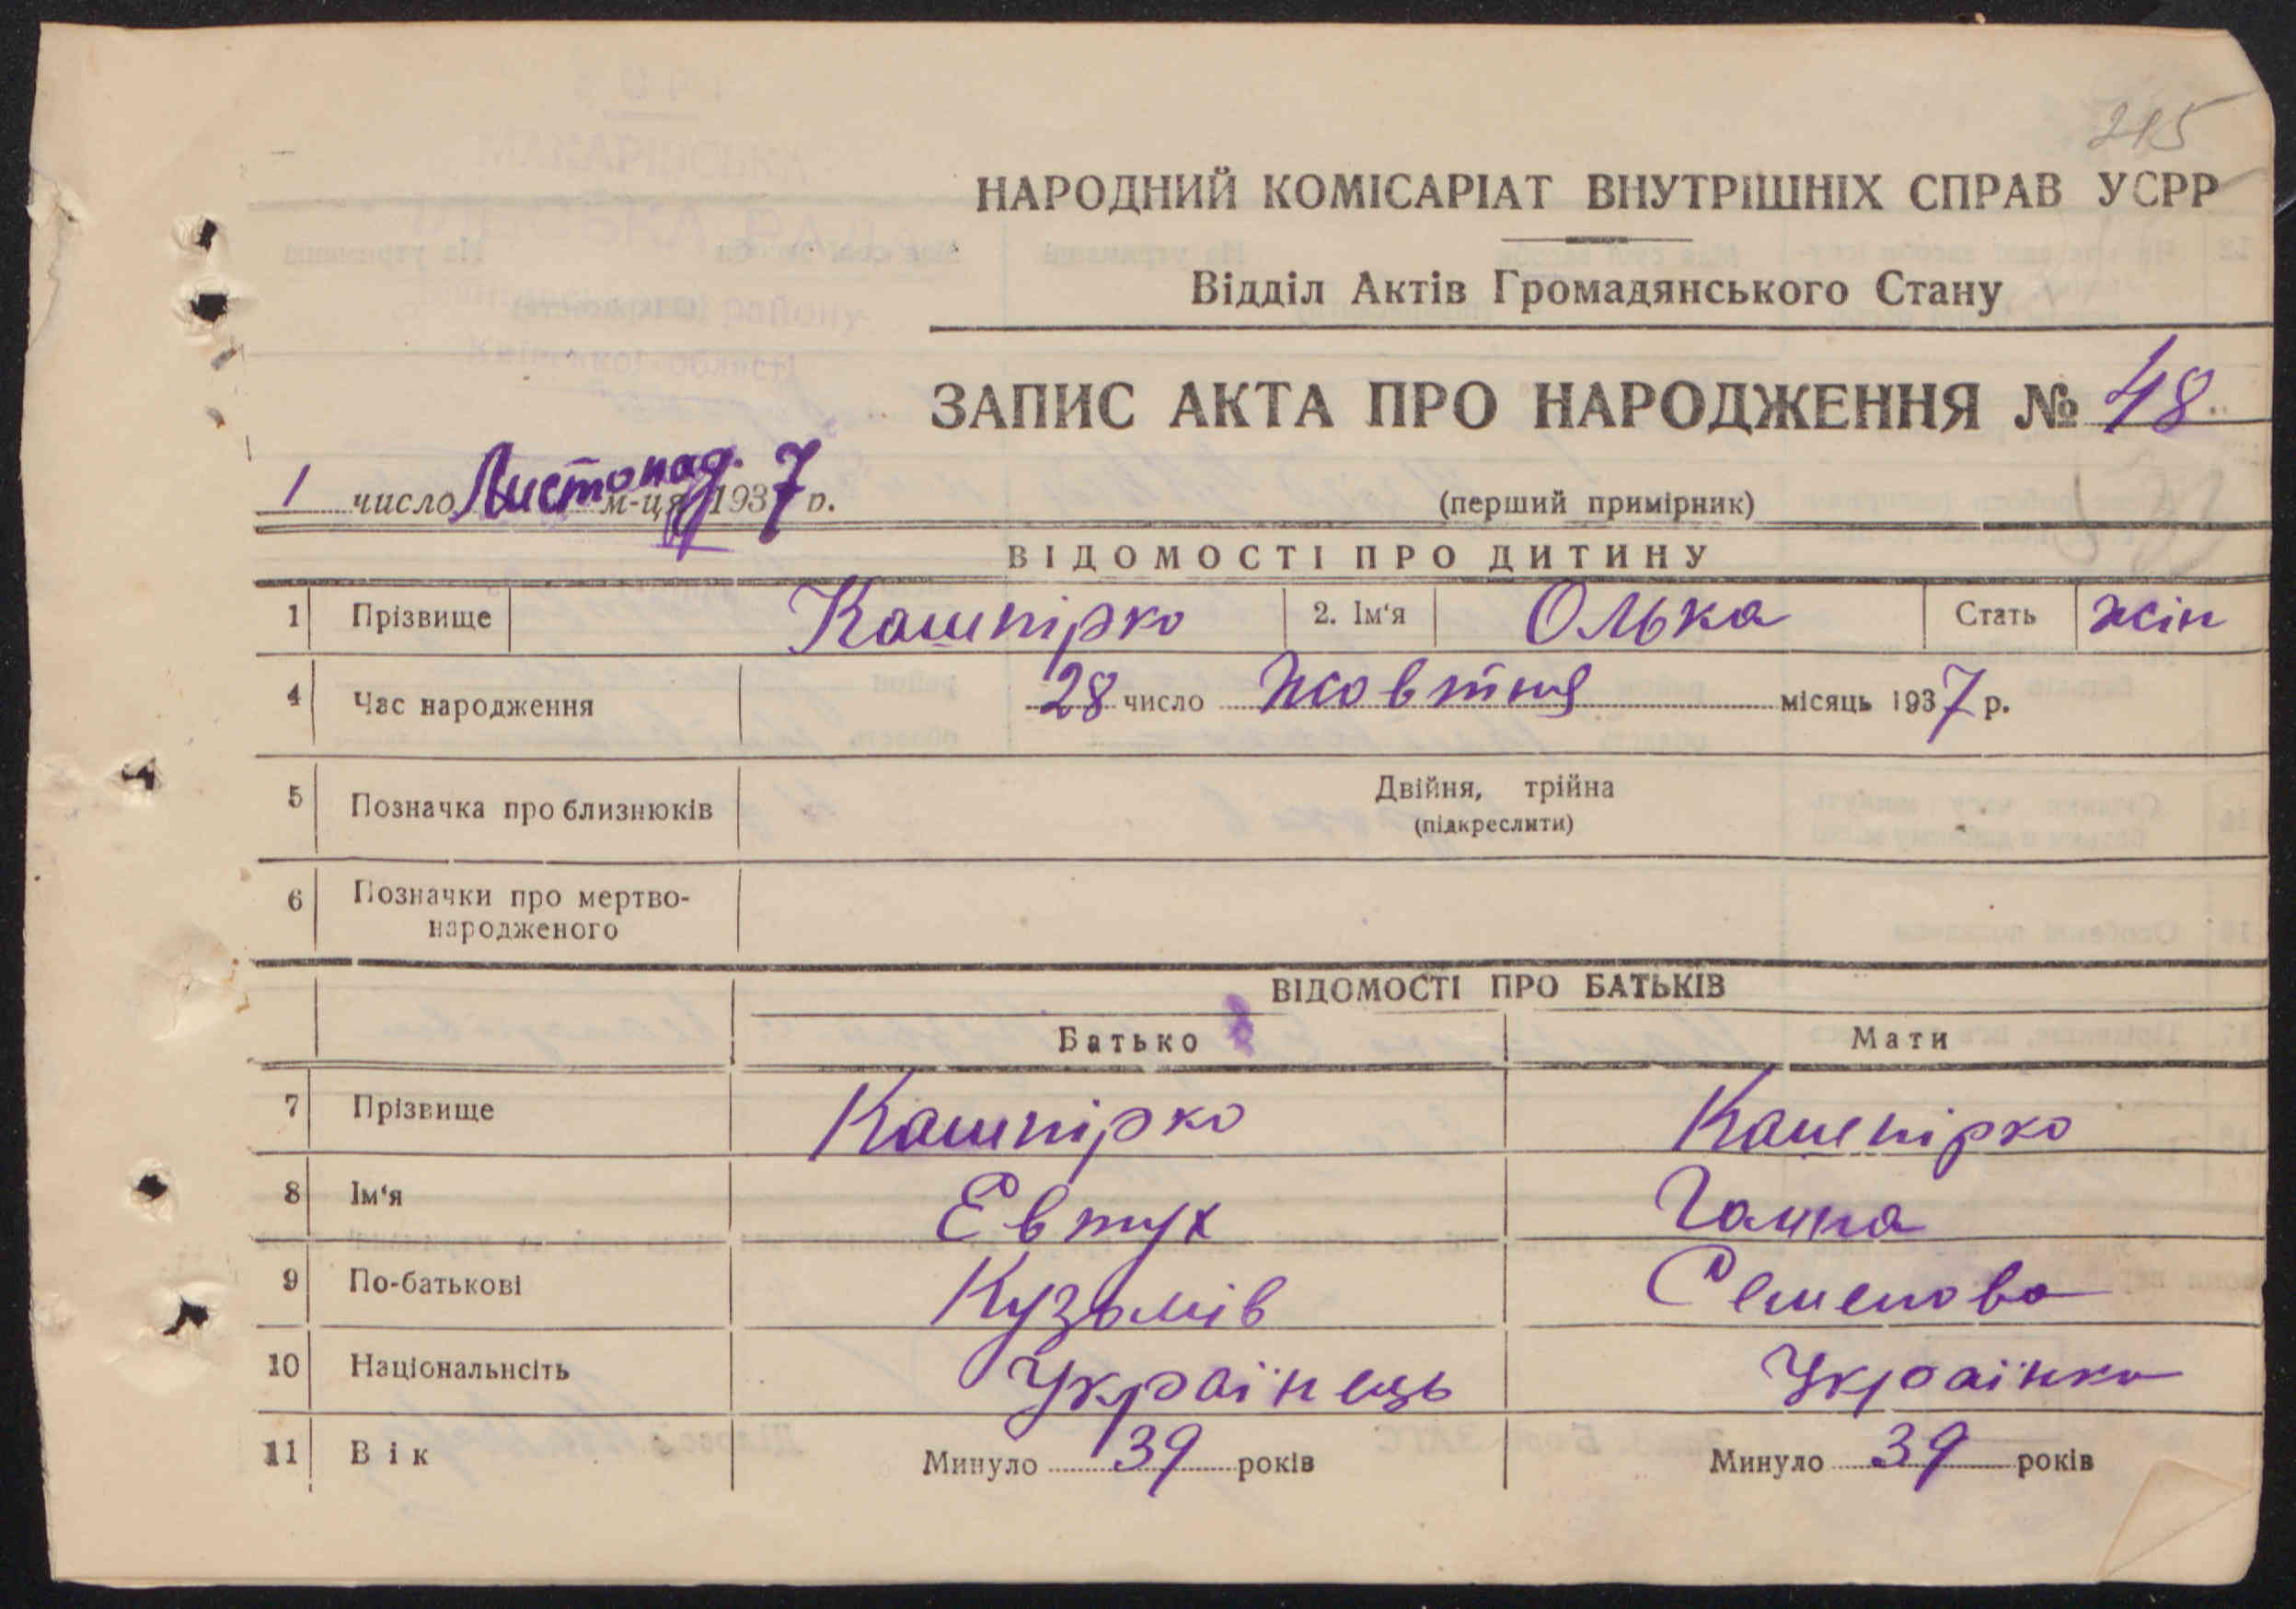 215
НАРОДНИЙ КОМІСАРІАТ ВНУТРІШНІХ СПРАВ УСРР
Відділ Актів Громадянського Стану
ЗАПИС АКТА ПРО НАРОДЖЕННЯ № 48
1 число Листопад. м-ця 1937 р.
(перший примірник)
ВІДОМОСТІ ПРО ДИТИНУ
1 Прізвище Кашпірко 2. Ім'я Олька Стать жін
4 Час народження 28 число жовтня місяць 1937 р.
5 Позначка про близнюків Двійня, трійна
(підкреслити)
6 Позначки про мертво-
народженого
ВІДОМОСТІ ПРО БАТЬКІВ
Батько Мати
7 Прізвище Кашпірко Кашпірко
8 Ім'я Евтух Ганна
9 По-батькові Кузьмів Семенова
10 Національнсіть Українець Українка
11 Вік Минуло 39 років Минуло 39 років